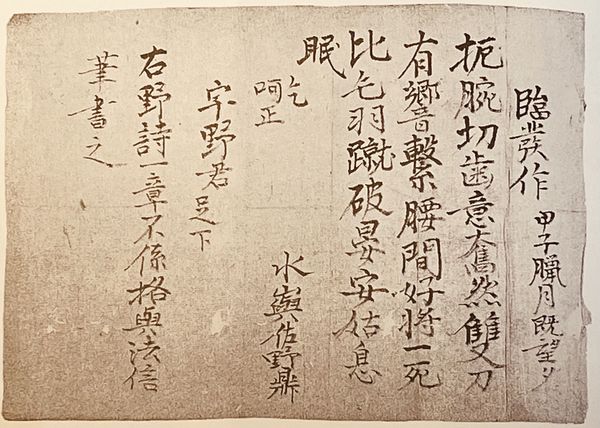 臨發作 甲子臘月既望夕
扼腕切歯意奮然雙刀
有響繫腰間好將一死
比毛羽蹴破晏安姑息
眠
乞
呵正
水輿佐野鼎
宇野君足下
右野詩一章不係格與法信
筆書之